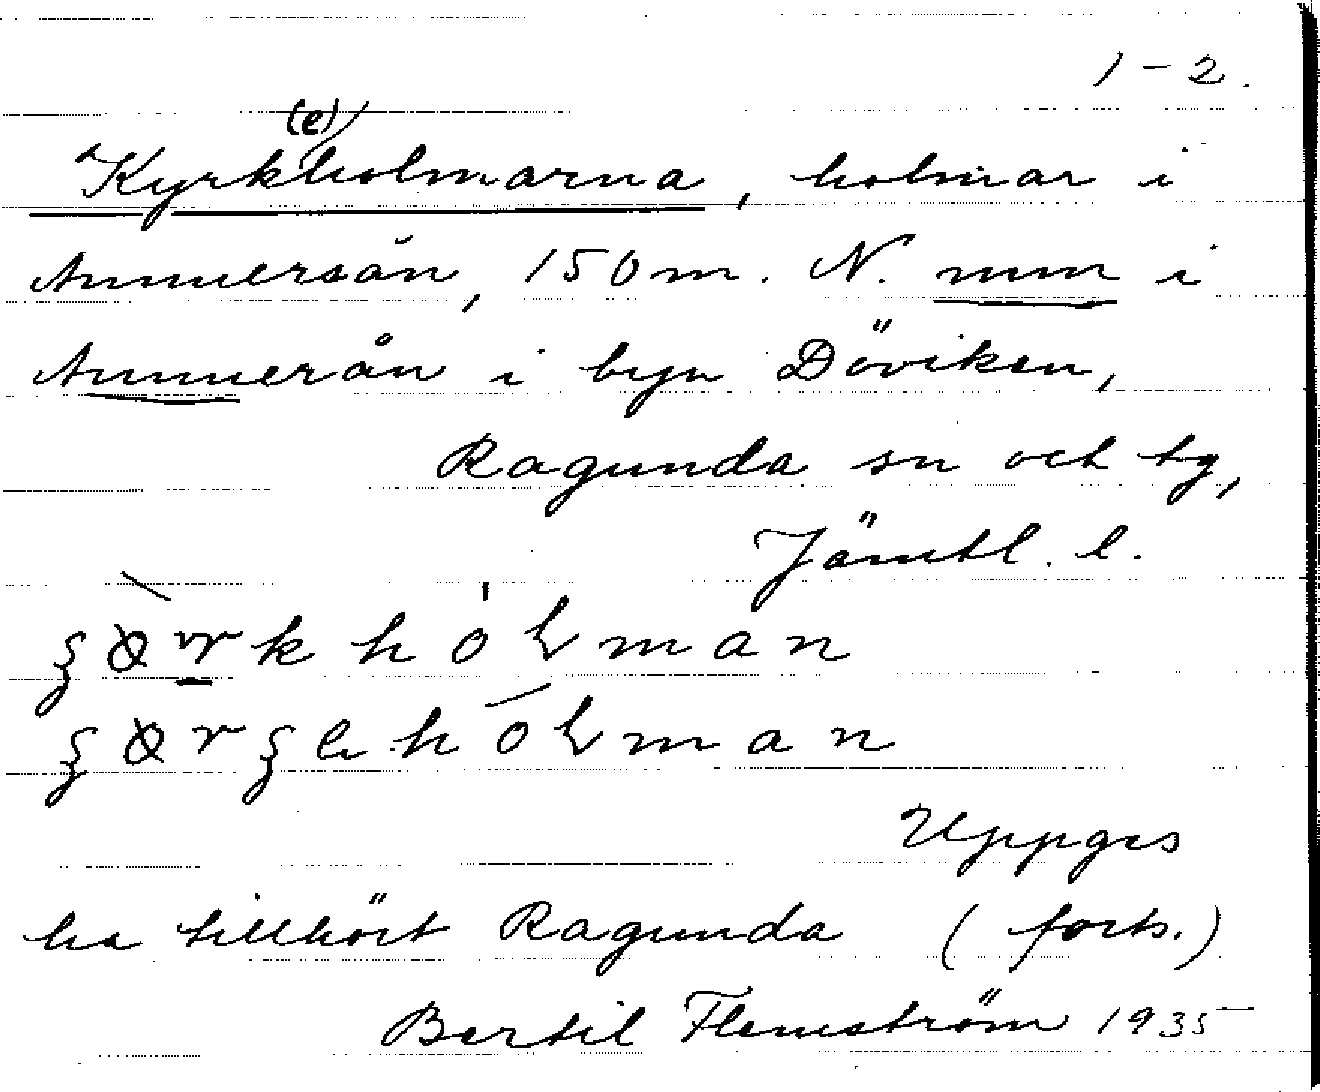 1-2.
(e)
Kyrkholmarna, holmar i
Ammersån, 150 m. N. mm i
Ammerån i byn Döviken,
Ragunda sn och tg,
Jämtl. l.
Uppges
ha tillhört Ragunda (forts.)
Bertil Flemström 1935